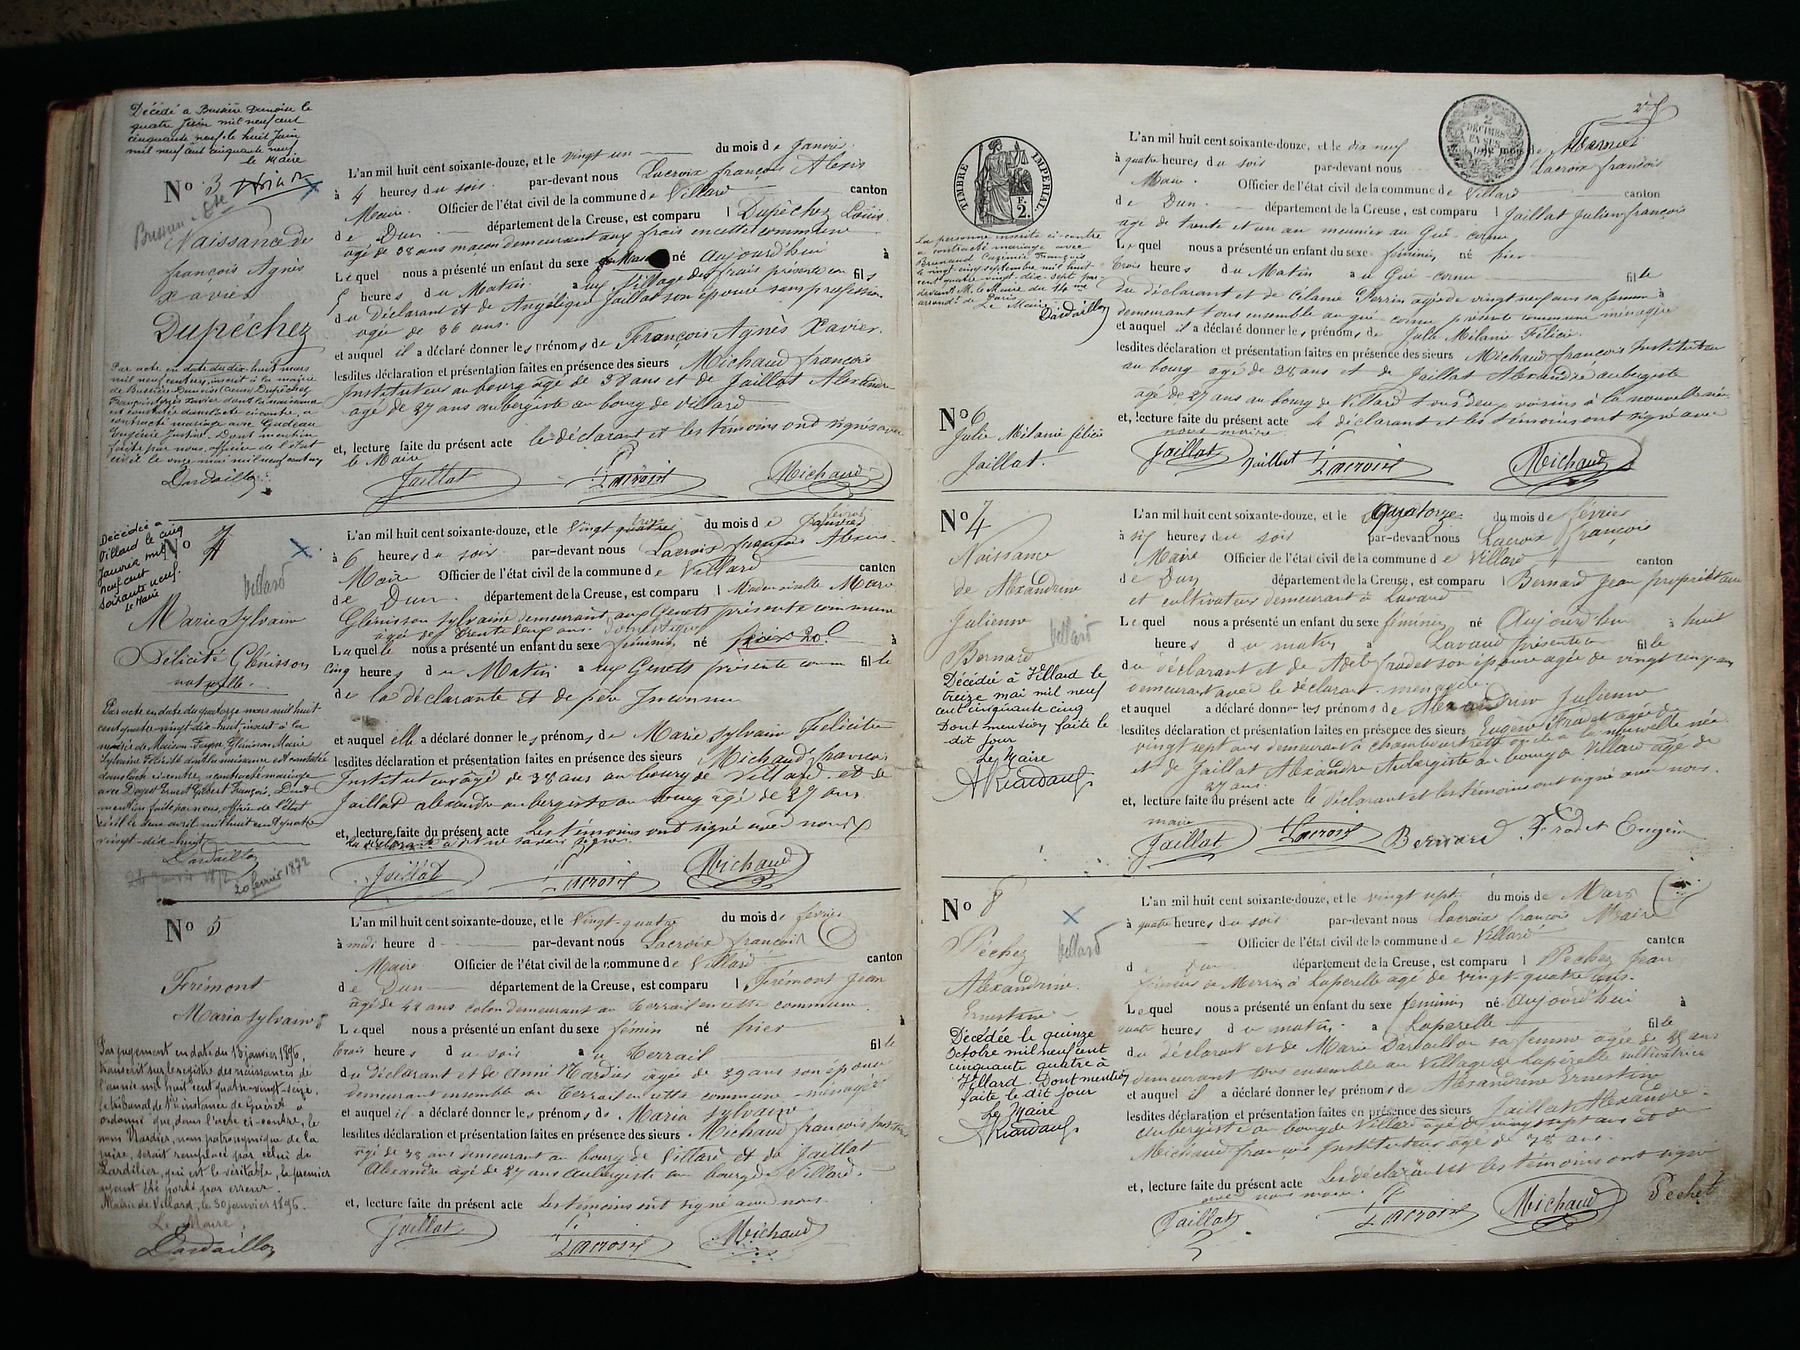 Décédé à Bussière Dunoise le
quatre juin mil neuf cent
cinquante neuf. le huit Juin
mil neuf cent cinquante neuf
le Maire
No 3
Naissance de
françois Agnès
Xavier
Dupêchez
Par acte en date du dix huit mars
contracté mariage avec
Dardaillon
L'an mil huit cent soixante-douze, et le vingt un du mois de janvier
à 4 heures du soir. par-devant nous Lacroix françois Alexis
Maire. Officier de l'état civil de la commune de Villard canton
de Dun département de la Creuse, est comparu Dupêchez Louis
âgé de 38 ans maçon demeurant aux frais en cette commune
Lequel nous a présenté un enfant du sexe né aujourd'hui à
5 heures du Matin à village des frais présente com fils
du Déclarant et de Angélique Jaillat son épouse sans profession
agée de 36 ans.
et auquel il a déclaré donner les prénoms de François Agnès Xavier.
lesdites déclaration et présentation faites en présence des sieurs Michaud françois
Instituteur au bourg âgé de 38 ans et de Jaillat Alexandre
agé de 27 ans aubergiste au bourg de Villard
et, lecture faite du présent acte le déclarant et les témoins ont signé avec
le Maire
Jaillat Lacroix Michaud
Décédée à
Villard le cinq
Janvier mil
neuf cent
soixante neuf.
le Maire
No 4
Villard
Marie Sylvain
Félicité Glénisson
naturelle.
Par acte en date du quatorze mars mil huit
cent quatre-vingt-dix-huit, inscrit à la
mairie de Maison-Feyne, Glénisson Marie
Sylvaine Félicité dont la naissance est constatée
dans l'acte ci-contre, a contracté mariage
avec Ernest Gilbert François. Dont
mention faite par nous, officier de l'état
civil le deux avril mil huit cent quatre
vingt-dix-huit
Dardaillon
20 février 1872
L'an mil huit cent soixante-douze, et le Vingt quatre du mois de janvier
à 6 heures du soir par-devant nous Lacroix françois Alexis.
Maire Officier de l'état civil de la commune de Villard canton
de Dun. département de la Creuse, est comparu Mademoiselle Marie
Glénisson Sylvaine demeurant aux Genets présente commune
âgée de trente deux ans
Laquelle nous a présenté un enfant du sexe féminin né à
cinq heures du Matin a aux Genets présente comm fille
de la déclarante et de père Inconnu
et auquel elle a déclaré donner les prénoms de Marie Sylvain Félicité
lesdites déclaration et présentation faites en présence des sieurs Michaud françois
Instituteur âgé de 38 ans au bourg de Villard et de
Jaillat alexandre aubergiste au bourg âgé de 27 ans.
et, lecture faite du présent acte Les témoins ont signé avec nous
la déclarante a dit ne savoir signer.
Jaillat Lacroix Michaud
No 5
Frémont
Maria Sylvain
Par jugement en date du 13 janvier 1896,
transcrit sur le registre des naissances de
l'année mil huit cent quatre-vingt-seize,
le tribunal de 1re instance de Guéret a
ordonné que, dans l'acte ci-contre, le
nom Nardies, nom patronymique de la
mère, serait remplacé par celui de
Lardilier, qui est le véritable, le premier
ayant été porté par erreur.
Mairie de Villard, le 30 janvier 1896.
Le Maire,
Dardaillon
L'an mil huit cent soixante-douze, et le Vingt-quatre du mois de février
à midi heure d par-devant nous Lacroix françois
Maire Officier de l'état civil de la commune de Villard canton
de Dun département de la Creuse, est comparu Frémont Jean
âgé de 42 ans colon demeurant au Terrail en cette commune
Lequel nous a présenté un enfant du sexe fémin né hier à
trois heures du soir a u Terrail fille
du déclarant et de Anne Nardies agée de 39 ans son épouse
demeurant ensemble au Terrail en cette commune ménagère
et auquel il a déclaré donner les prénoms de Maria Sylvain
lesdites déclaration et présentation faites en présence des sieurs Michaud françois Institut
âgé de 38 ans demeurant au bourg de Villard et de Jaillat
Alexandre âgé de 27 ans aubergiste au bourg de Villard.
et, lecture faite du présent acte les témoins ont signé avec nous
Jaillat Lacroix Michaud
TIMBRE IMPÉRIAL
2.
2 DÉCIMES EN SUS
La personne inscrite ci-contre
a contracté mariage avec
Brunaud Casimir François
le vingt cinq septembre mil huit
cent quatre-vingt-dix-sept par
devant M. le Maire du 14me
arrondt de Paris
Le Maire
Dardaillon
No 6
Julie Mélanie félicie
Jaillat.
L'an mil huit cent soixante-douze, et le dix neuf du mois de
à quatre heures du soir par-devant nous Lacroix françois
Maire. Officier de l'état civil de la commune de Villard canton
de Dun. département de la Creuse, est comparu Jaillat Julien françois
âgé de trente et un an meunier au Gué-cornu
Lequel nous a présenté un enfant du sexe féminin né hier
trois heures du Matin a u Gué cornu fille
du déclarant et de Célanie Perrin agée de vingt neuf ans sa femme à
demeurant tous ensemble au gué-cornu présente commune ménagère
et auquel il a déclaré donner les prénoms de Julie Mélanie Félicie.
lesdites déclaration et présentation faites en présence des sieurs Michaud françois Instituteur
au bourg agé de 38 ans et de Jaillat Alexandre aubergiste
agé de 27 ans au bourg de Villard tous deux voisins à la nouvelle née.
et, lecture faite du présent acte le déclarant et les témoins ont signé avec
nous maire
Jaillat Jaillat Lacroix Michaud
No 7
Naissance
de Alexandrine
Julienne
Bernard
Villard
Décédée à Villard le
treize mai mil neuf
cent cinquante cinq
Dont mention faite le
dit jour
Le Maire
L'an mil huit cent soixante-douze, et le Quatorze du mois de février
à six heures du soir par-devant nous Lacroix françois
Maire Officier de l'état civil de la commune de Villard canton
de Dun département de la Creuse, est comparu Bernard Jean propriétaire
et cultivateur demeurant à Lavaud
Lequel nous a présenté un enfant du sexe féminin né Aujourd'hui à huit
heures du matin a Lavaud présente com fille
du déclarant et de Adèle fradet son épouse agée de vingt cinq ans
demeurant avec le déclarant. ménagère.
et auquel a déclaré donner les prénoms de Alexandrine Julienne
lesdites déclaration et présentation faites en présence des sieurs Eugène Fradet agé de
vingt sept ans demeurant à
et de Jaillat Alexandre Aubergiste au bourg de Villard agé de
27 ans.
et, lecture faite du présent acte le déclarant et les témoins ont signé avec nous.
maire
Jaillat Lacroix Bernard Fradet Eugène
No 8
Villard
Péchez
Alexandrine
Ernestine
Décédée le quinze
Octobre mil neuf cent
cinquante quatre à
Villard. Dont mention
faite le dit jour
Le Maire
L'an mil huit cent soixante-douze, et le vingt sept du mois de Mars
à quatre heures du soir par-devant nous Lacroix françois Maire
Officier de l'état civil de la commune de Villard canton
de Dun département de la Creuse, est comparu Pechez Jean
à Laperelle agé de vingt quatre ans.
Lequel nous a présenté un enfant du sexe féminin né aujourd'hui à
quatre heures du matin a Laperelle fille
du déclarant et de Marie Dardaillon sa femme agée de 18 ans
demeurant tous ensemble au Village de Laperelle cultivatrice
et auquel il a déclaré donner les prénoms de Alexandrine Ernestine
lesdites déclaration et présentation faites en présence des sieurs Jaillat Alexandre
aubergiste au bourg de Villard agé de vingt sept ans et de
Michaud françois Instituteur agé de 38 ans.
et, lecture faite du présent acte Les déclarant et les témoins ont signé
avec nous maire.
Jaillat Lacroix Michaud Pechet